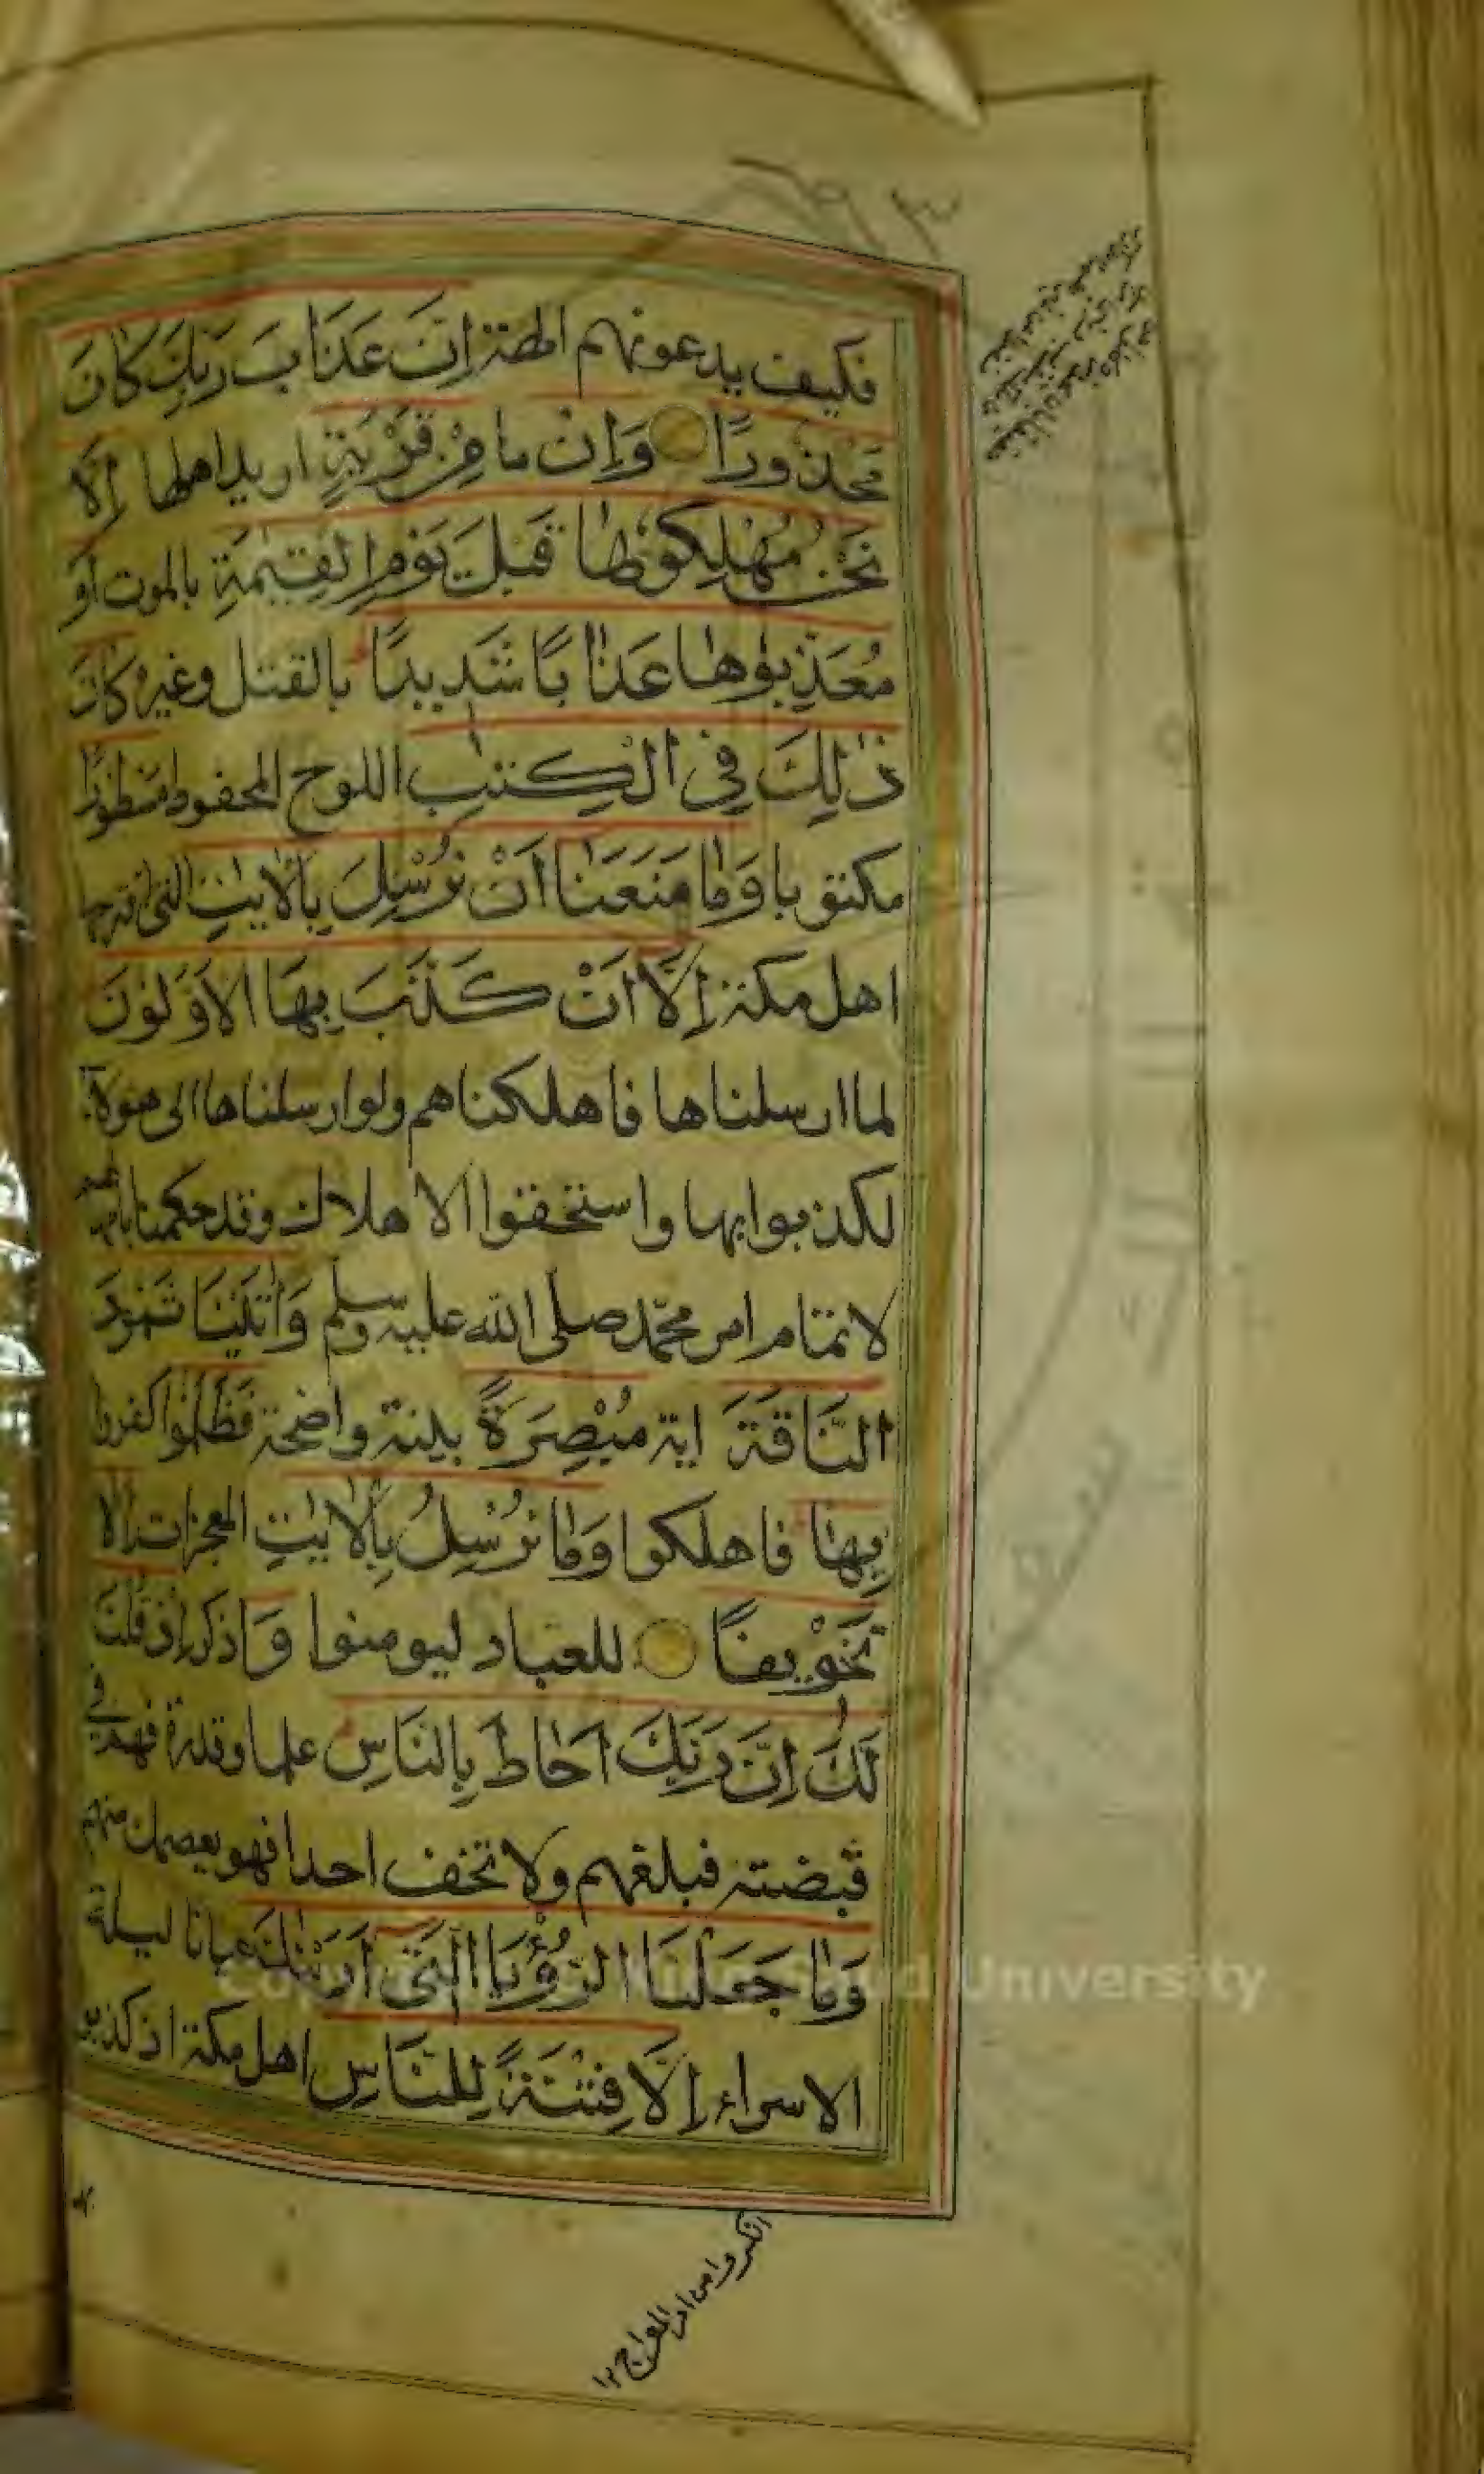 فكيف يدعونهم الهة اِنَّ عَذَابَ رَبِّكَ كَانَ
مَحْذُورًا وَاِنْ ما مِنْ قَرْيَةٍ اريد اهلها اِلَّا
نَحْنُ مُهْلِكُوهَا قَبْلَ يَوْمِ الْقِيٰمَةِ بالموت اَوْ
مُعَذِّبُوهَا عَذَابًا شَدِيدًا بالقتل وغيره كَانَ
ذٰلِكَ فِى الْكِتٰبِ اللوح المحفوظ مَسْطُورًا
مكتوبا وَمَا مَنَعَنَا اَنْ نُرْسِلَ بِالْاٰيٰتِ التى اقترحها
اهل مكة اِلَّا اَنْ كَذَّبَ بِهَا الْاَوَّلُونَ
لما ارسلناها فاهلكناهم ولو ارسلناها الى هؤلاء
لكذبوا بها واستحقوا الاهلاك وقد حكمنا بامهالهم
لاتمام امر محمّد صلى الله عليه وسلم وَاٰتَيْنَا ثَمُودَ
النَّاقَةَ اية مُبْصِرَةً بينة واضحة فَظَلَمُوا كفروا
بِهَا فاهلكوا وَمَا نُرْسِلُ بِالْاٰيٰتِ المعجزات اِلَّا
تَخْوِيفًا للعباد ليومنوا وَاذكر اِذْ قُلْنَا
لَكَ اِنَّ رَبَّكَ اَحَاطَ بِالنَّاسِ علما وقدرة فهم فى
قبضته فبلغهم ولا تخف احدا فهو يعصمك منهم
وَمَا جَعَلْنَا الرُّؤْيَا الَّتِى اَرَيْنٰكَ عيانا ليلة
الاسراء اِلَّا فِتْنَةً لِلنَّاسِ اهل مكة اذ كذبوا
Copyright © King Saud University